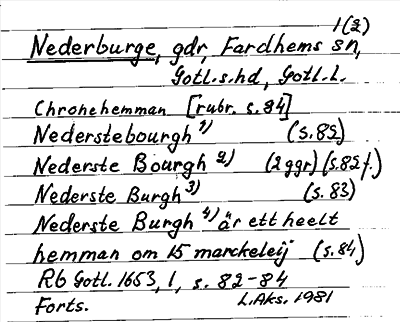 1(2)
Nederburge, gdr, Fardhems sn,
Gotl.s.hd, Gotl.L.
Chronehemman [rubr. s.84]
Nederstebourgh 1) (s.82)
Nederste Bourgh 2) (2 ggr) (s.82 f.)
Nederste Burgh 3) (s.83)
Nederste Burgh 4) är ett heelt
hemman om 15 marckeleij (s.84)
Rb Gotl. 1653, 1, s. 82-84
Forts. L.Aks. 1981